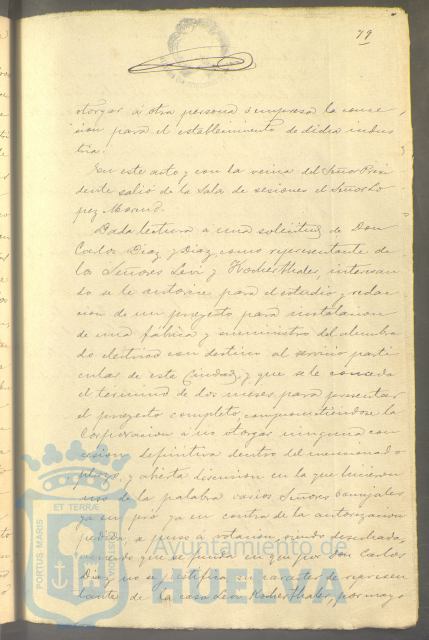 79
otorgar á otra persona ó empresa la conce-
sion para el establecimiento de dicha indus
tria.
En este acto y con la venia del Señor Presi
dente salió de la Sala de sesiones el Señor Lo-
pez Moreno.
Dada lectura á una solicitud de Don
Carlos Diaz y Diaz, como representante de
los Señores Levi y Kocherthaler, interesan
do se le autorice para el estudio y redac
cion de un proyecto para instalacion
de una fábrica y suministro del alumbra
do eléctrico con destino al servicio parti
cular de esta Ciudad, y que se le conceda
el termino de dos meses para presentar
el proyecto completo, comprometiendose la
Corporacion á no otorgar ninguna con
cesion definitiva dentro del mencionado
plazo, y abierta discusion en la que hicieron
uso de la palabra varios Señores Concejales
ya en pró ya en contra de la autorizacion
pedida, se puso á votacion, siendo desechada,
acuerdo que se funda en que por Don Carlos
Diaz no se justifica su carácter de represen
tante de la casa Levi Kocherthaler, por mayo
PORTUS MARIS ET TERRÆ CUSTODIA
Ayuntamiento de
HUELVA